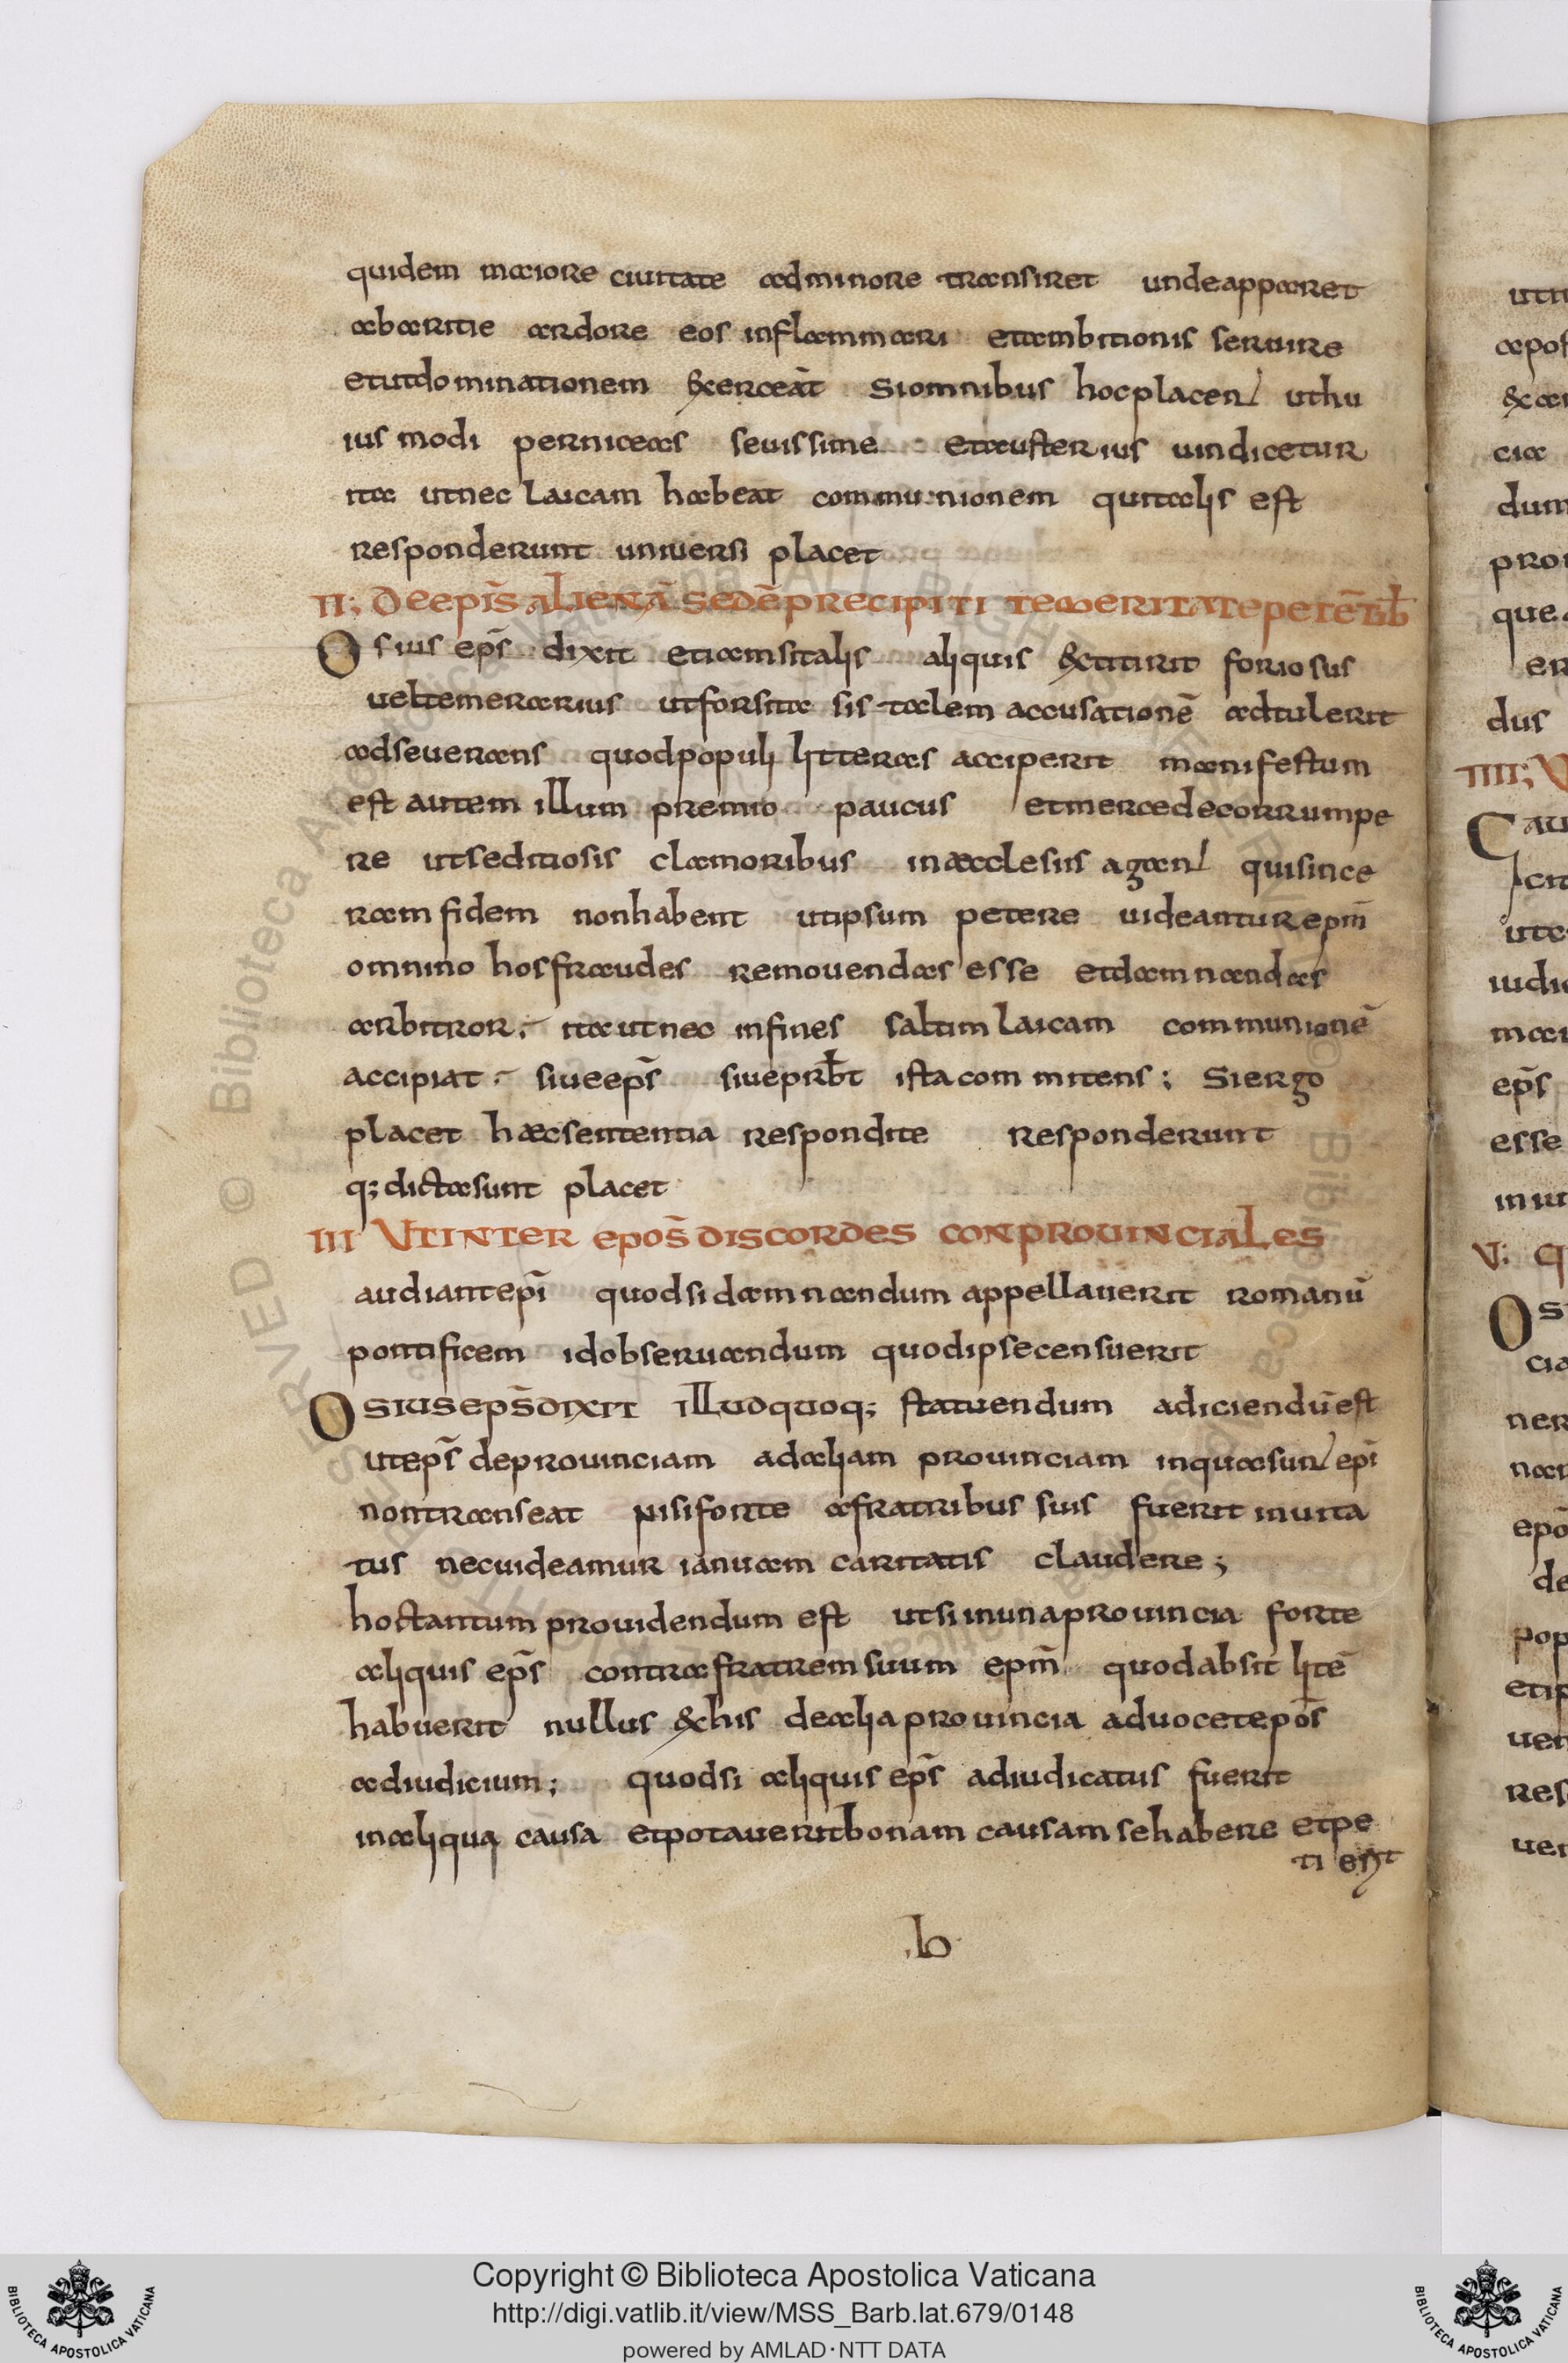 quidem maiore ciuitate adminore transiret undeapparet
abaritie ardore eos inflammari etambitionis seruire
etutdominationem &cerceāt Siomnibus hocplacen& uthu
ius modi perniceas seuissime etausterius uindicetur
ita utnec laicam habeat communionem quitalis est
responderunt uniuersi placet
II; Deepīs alienā sedēprecipiti temeritatepetētib
Osius eps̄ dixit etiamsitalis aliquis &ctiturit foriosus
ueltemerarius utforsita sis talem accusationē adtulerit
adseuerans quodpopuli litteras acciperit manifestum
est autem illum premio paucus etmercedecorrumpe
re utseditiosis clamoribus inæcclesiis agan& quisince
ram fidem nonhabent utipsum petere uideanturepm̄
omnino hosfraudes remouendas esse etdamnandas
arbitror; itautnec infines saltim laicam communionē
accipiat; siueeps̄ siueprb̄t ista committens; Siergo
placet hæcsententia respondite responderunt
q; dictasunt placet
III Utinter epos̄ discordes conprouinciales
audiantepī quodsidamnandum appellauerit romanū
pontificem idobseruandum quodipsecensuerit
Osiuseps̄dixit illudquoq; statuendum adiciendūest
uteps̄ deprouinciam adaliam prouinciam inquasun& epī
nontranseat nisiforte afratribus suis fuerit inuita
tus necuideamur ianuam caritatis claudere;
hoctantum prouidendum est utsiinunaprouincia forte
aliquis eps̄ contrafratrem suum epm̄ quodabsit litē
habuerit nullus &his dealiaprouincia aduocetepōs
adiudicium; quodsi aliquis eps̄ adiudicatus fuerit
inaliqua causa etpotaueritbonam causam sehabere etpe
b
Copyright © Biblioteca Apostolica Vaticana
http://digi.vatlib.it/view/MSS_Barb.lat.679/0148
powered by AMLAD·NTT DATA
BIBLIOTECA APOSTOLICA VATICANA
BIBLIOTECA APOSTOLICA VATICANA